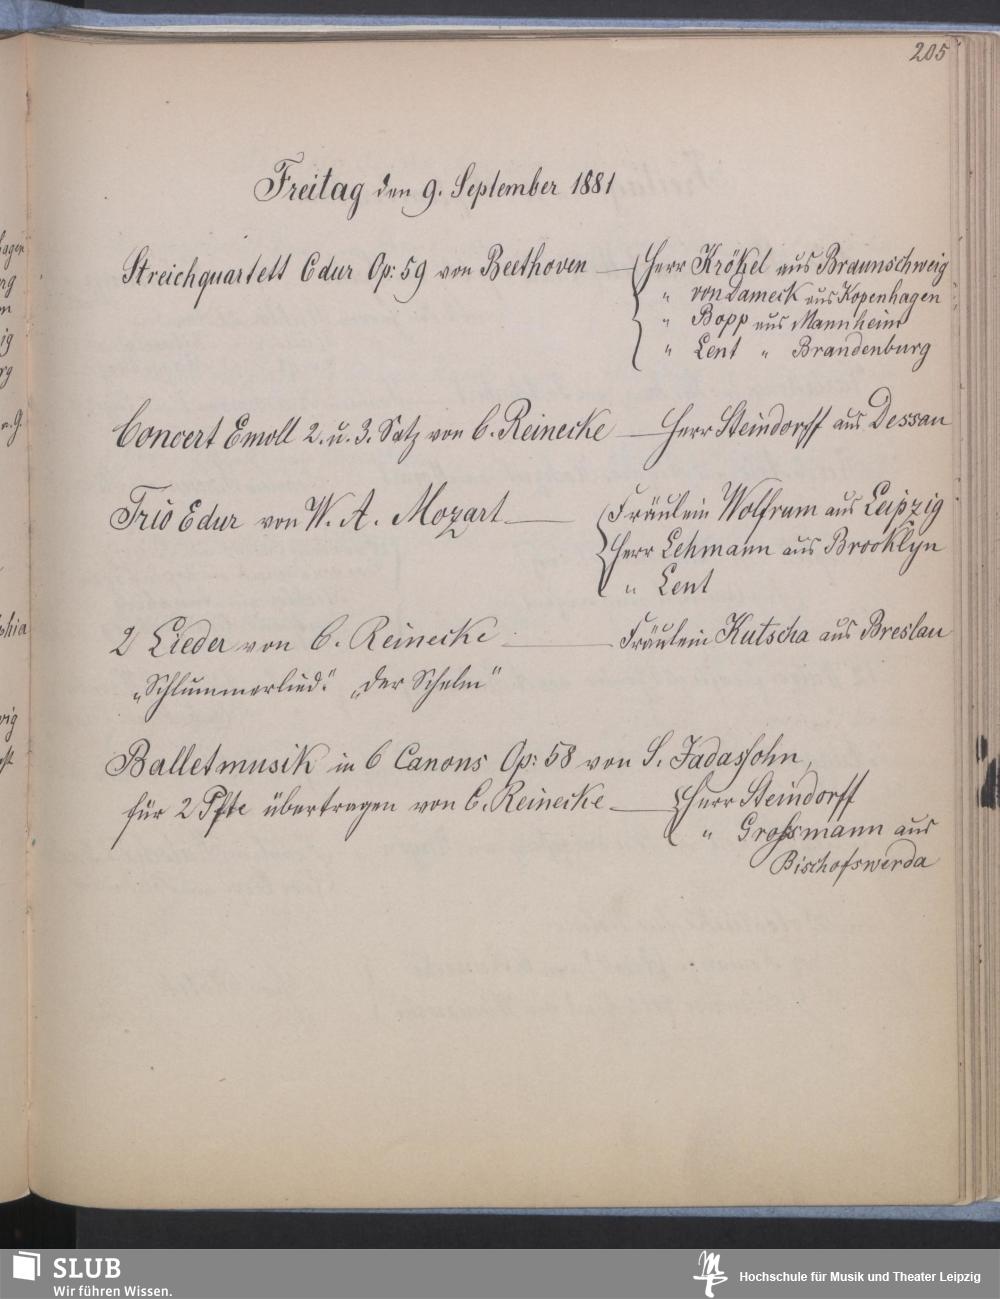 205
Freitag den 9. September 1881
Streichquartett Cdur Op: 59 von Beethoven — Herr Krökel aus Braunschweig
" von Dameck aus Kopenhagen
" Bopp aus Mannheim
" Lent " Brandenburg
Concert Emoll 2. u. 3. Satz von C. Reinecke — Herr Steindorff aus Dessau
Trio Edur von W. A. Mozart — Fräulein Wolfrum aus Leipzig
Herr Lehmann aus Brooklyn
" Lent
2 Lieder von C. Reinecke — Fräulein Kutscha aus Breslau
„Schlummerlied." „Der Schelm"
Balletmusik in 6 Canons Op: 58 von S. Jadassohn,
für 2 Pfte übertragen von C. Reinecke — Herr Steindorff
" Grossmann aus
Bischofswerda
SLUB
Wir führen Wissen.
Hochschule für Musik und Theater Leipzig